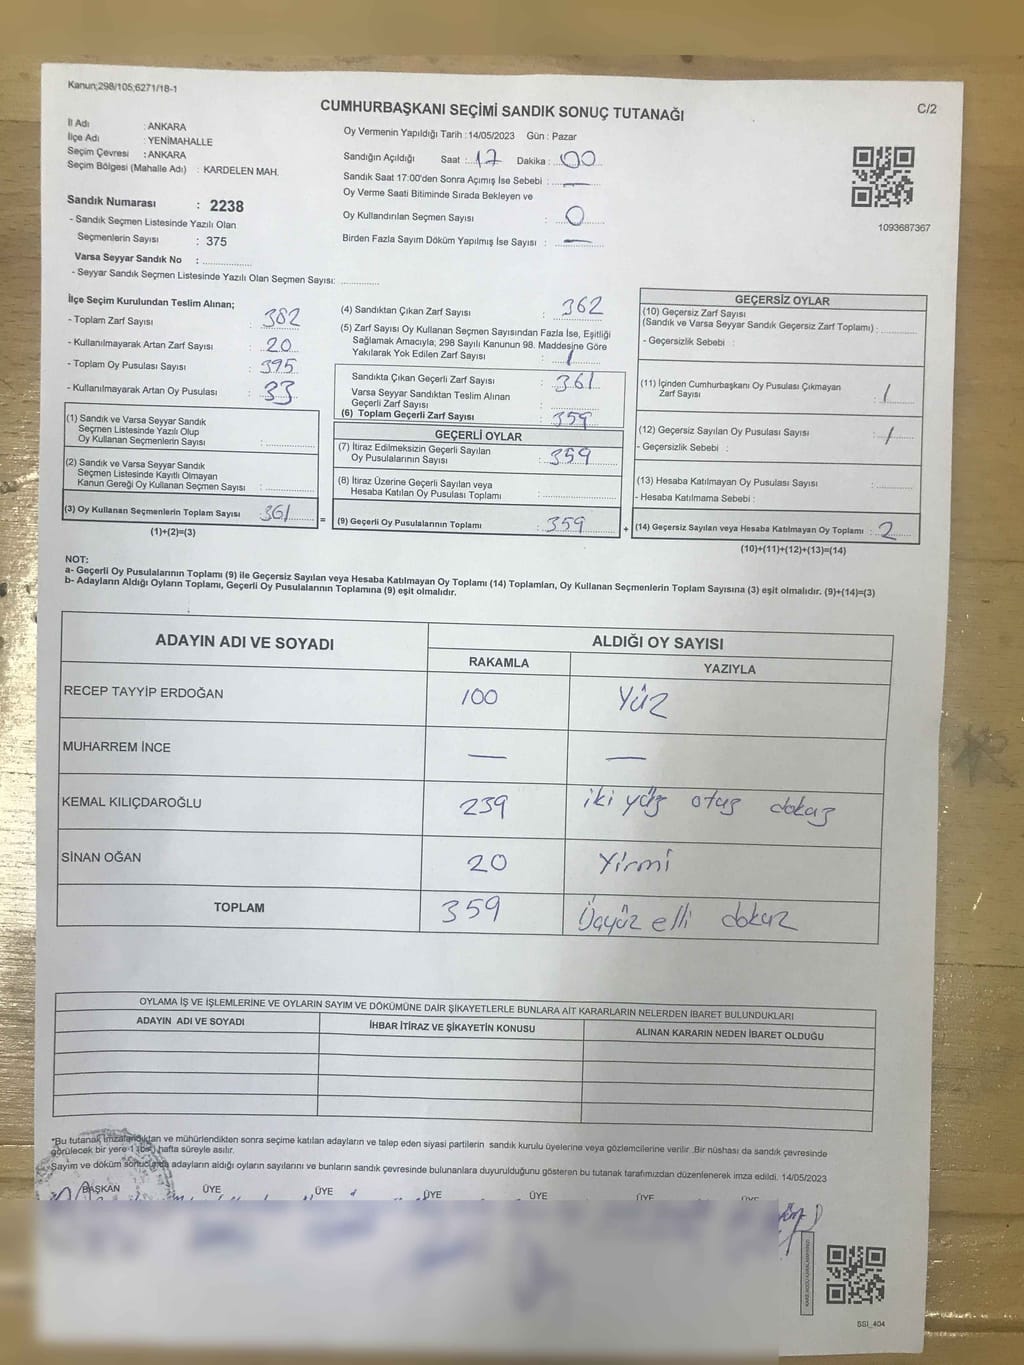 Kanun;298/105;6271/18-1
CUMHURBAŞKANI SEÇİMİ SANDIK SONUÇ TUTANAĞI
C/2
İl Adı : ANKARA
İlçe Adı : YENİMAHALLE
Seçim Çevresi : ANKARA
Seçim Bölgesi (Mahalle Adı) : KARDELEN MAH.
Oy Vermenin Yapıldığı Tarih : 14/05/2023 Gün : Pazar
Sandığın Açıldığı Saat : 17 Dakika : 00
Sandık Saat 17:00'den Sonra Açımış İse Sebebi : —
Oy Verme Saati Bitiminde Sırada Bekleyen ve
Oy Kullandırılan Seçmen Sayısı : 0
Birden Fazla Sayım Döküm Yapılmış İse Sayısı : —
1093687367
Sandık Numarası : 2238
- Sandık Seçmen Listesinde Yazılı Olan
Seçmenlerin Sayısı : 375
Varsa Seyyar Sandık No :
- Seyyar Sandık Seçmen Listesinde Yazılı Olan Seçmen Sayısı:
İlçe Seçim Kurulundan Teslim Alınan;
- Toplam Zarf Sayısı : 382
- Kullanılmayarak Artan Zarf Sayısı : 20
- Toplam Oy Pusulası Sayısı : 395
- Kullanılmayarak Artan Oy Pusulası : 33
(1) Sandık ve Varsa Seyyar Sandık
Seçmen Listesinde Yazılı Olup
Oy Kullanan Seçmenlerin Sayısı :
(2) Sandık ve Varsa Seyyar Sandık
Seçmen Listesinde Kayıtlı Olmayan
Kanun Gereği Oy Kullanan Seçmen Sayısı :
(3) Oy Kullanan Seçmenlerin Toplam Sayısı : 361
(1)+(2)=(3)
=
(4) Sandıktan Çıkan Zarf Sayısı : 362
(5) Zarf Sayısı Oy Kullanan Seçmen Sayısından Fazla İse, Eşitliği
Sağlamak Amacıyla; 298 Sayılı Kanunun 98. Maddesine Göre
Yakılarak Yok Edilen Zarf Sayısı : 1
Sandıkta Çıkan Geçerli Zarf Sayısı : 361
Varsa Seyyar Sandıktan Teslim Alınan
Geçerli Zarf Sayısı :
(6) Toplam Geçerli Zarf Sayısı : 359
GEÇERLİ OYLAR
(7) İtiraz Edilmeksizin Geçerli Sayılan
Oy Pusulalarının Sayısı : 359
(8) İtiraz Üzerine Geçerli Sayılan veya
Hesaba Katılan Oy Pusulası Toplamı :
(9) Geçerli Oy Pusulalarının Toplamı : 359
+
GEÇERSİZ OYLAR
(10) Geçersiz Zarf Sayısı
(Sandık ve Varsa Seyyar Sandık Geçersiz Zarf Toplamı) :
- Geçersizlik Sebebi :
(11) İçinden Cumhurbaşkanı Oy Pusulası Çıkmayan
Zarf Sayısı : 1
(12) Geçersiz Sayılan Oy Pusulası Sayısı : 1
- Geçersizlik Sebebi :
(13) Hesaba Katılmayan Oy Pusulası Sayısı :
- Hesaba Katılmama Sebebi :
(14) Geçersiz Sayılan veya Hesaba Katılmayan Oy Toplamı : 2
(10)+(11)+(12)+(13)=(14)
NOT:
a- Geçerli Oy Pusulalarının Toplamı (9) ile Geçersiz Sayılan veya Hesaba Katılmayan Oy Toplamı (14) Toplamları, Oy Kullanan Seçmenlerin Toplam Sayısına (3) eşit olmalıdır. (9)+(14)=(3)
b- Adayların Aldığı Oyların Toplamı, Geçerli Oy Pusulalarının Toplamına (9) eşit olmalıdır.
ADAYIN ADI VE SOYADI
ALDIĞI OY SAYISI
RAKAMLA YAZIYLA
RECEP TAYYİP ERDOĞAN 100 Yüz
MUHARREM İNCE — —
KEMAL KILIÇDAROĞLU 239 iki yüz otuz dokuz
SİNAN OĞAN 20 Yirmi
TOPLAM 359 Üçyüz elli dokuz
OYLAMA İŞ VE İŞLEMLERİNE VE OYLARIN SAYIM VE DÖKÜMÜNE DAİR ŞİKAYETLERLE BUNLARA AİT KARARLARIN NELERDEN İBARET BULUNDUKLARI
ADAYIN ADI VE SOYADI İHBAR İTİRAZ VE ŞİKAYETİN KONUSU ALINAN KARARIN NEDEN İBARET OLDUĞU
*Bu tutanak imzalandıktan ve mühürlendikten sonra seçime katılan adayların ve talep eden siyasi partilerin sandık kurulu üyelerine veya gözlemcilerine verilir .Bir nüshası da sandık çevresinde
görülecek bir yere 1 (bir) hafta süreyle asılır.
Sayım ve döküm sonucunda adayların aldığı oyların sayılarını ve bunların sandık çevresinde bulunanlara duyurulduğunu gösteren bu tutanak tarafımızdan düzenlenerek imza edildi. 14/05/2023
BAŞKAN ÜYE ÜYE ÜYE ÜYE ÜYE ÜYE
SSI_404